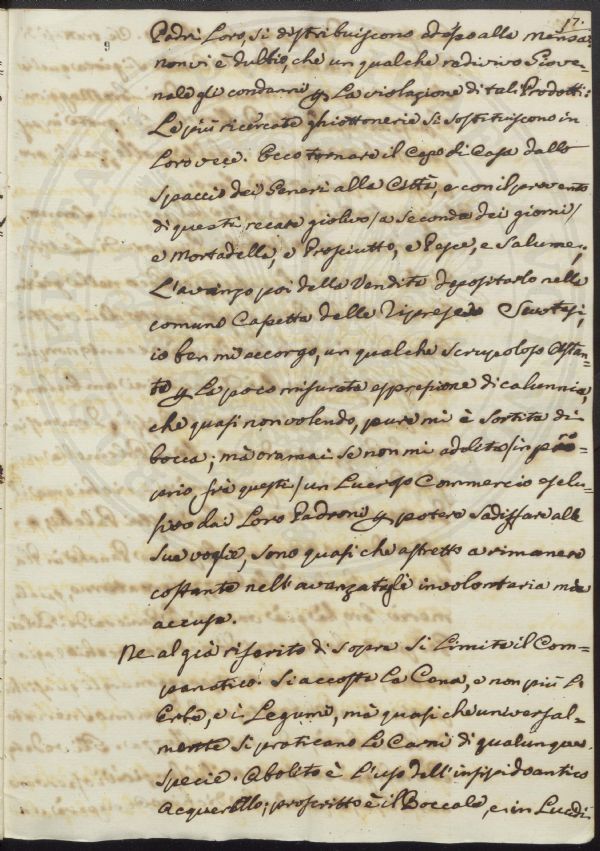 17.
Padri Loro, si distribuiscono adesso alla mensa;
non vi è dubbio, che un qualche redivivo Giove-
nale gli condanni p La violazione di tali Prodotti:
Le più ricercate ghiottonerie si sostituiscono in
Loro vece. Ecco tornare il Capo di Casa dallo
spaccio dei Generi alla Città, e con il provento
di questi recare giolivo / a seconda dei giorni /
e Mortadella, e Prosciutto, e Pesce, e Salume;
L'avanzo poi della Vendita depositarlo nella
comune Cassetta delle
io ben mi accorgo, un qualche scrupoloso Astan-
te p La poco misurata espressione di calunnia,
che quasi non volendo, pure mi è sortita di
bocca; mà oramai se non mi additate / in pro-
prio frà questi / un Lucroso Commercio esclu-
sivo dai Loro Padroni p potere sadisfare alle
sue voglie, sono quasi che astretto a rimanere
costante nell'avanzatagli involontaria mia
accusa.
Ne al già riferito di sopra si Limita il Com-
panatico. Si accosta La Cena, e non più Le
Erbe, e i Legumi, mà quasi che universal-
mente si praticano Le Carni di qualunque
specie. Abolito è L'uso dell'insipido antico
Acquerello; proscritto è il Boccale, e in Lucidi